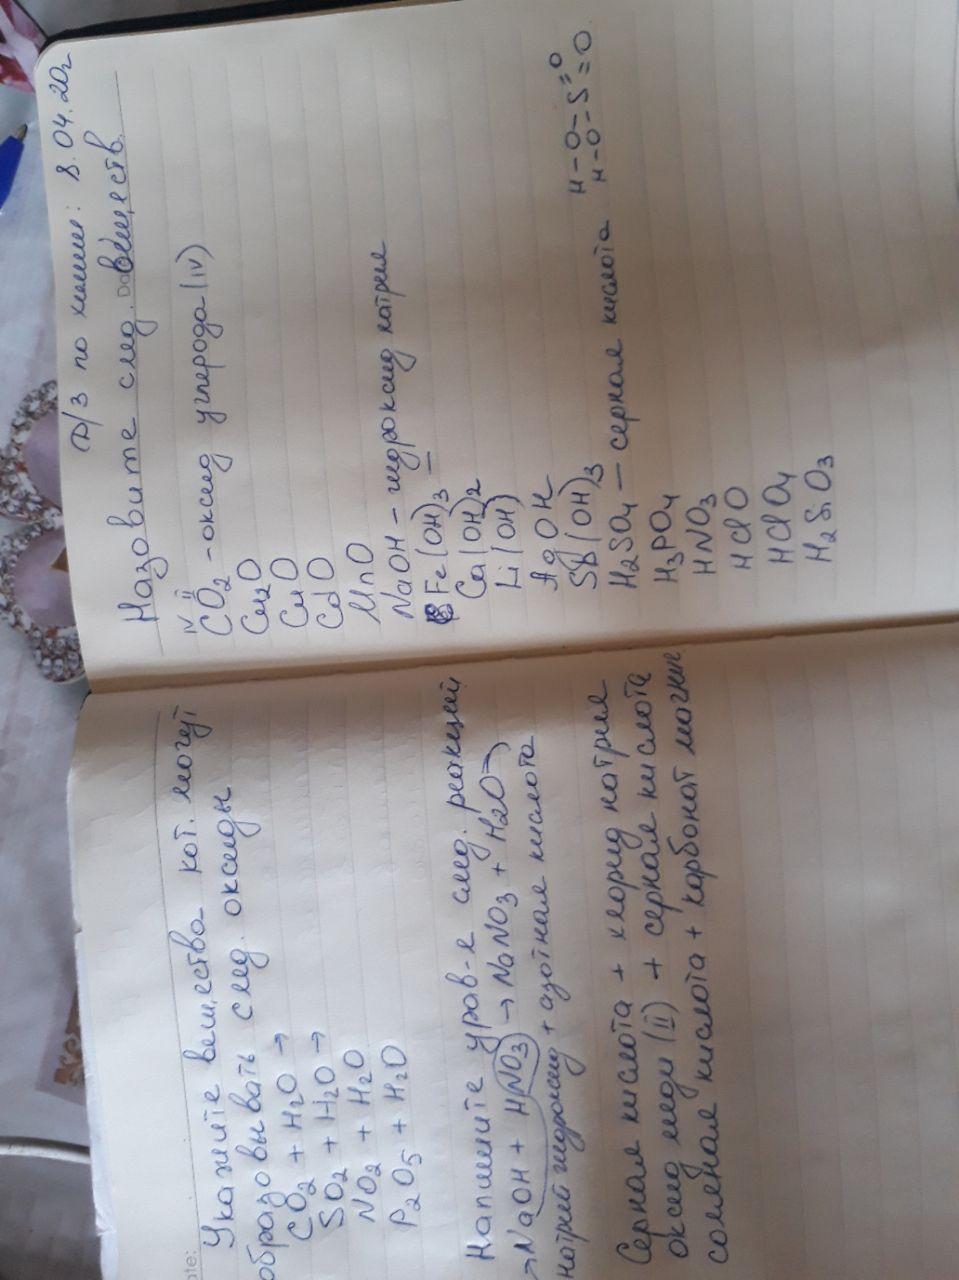 Д/З по химии: 8.04.20г
Назовите след. веществ.
IV II
CO2 - оксид углерода (IV)
Cu2O
CuO
CdO
MnO
NaOH - гидроксид натрия
Fe(OH)3 —
Ca(OH)2
Li(OH)
AgOH
Sb(OH)3
H2SO4 — серная кислота
H - O - S = O
H - O - = O
H3PO4
HNO3
HClO
HClO4
H2SiO3
Укажите вещества кот. могут
образовывать след. оксиды
CO2 + H2O →
SO2 + H2O →
NO2 + H2O
P2O5 + H2O
Напишите уров-я след. реакций
→ NaOH + HNO3 → NaNO3 + H2O
натрий гидроксид + азотная кислота
Серная кислота + хлорид натрия
оксид меди (II) + серная кислота
соляная кислота + карбонат магния